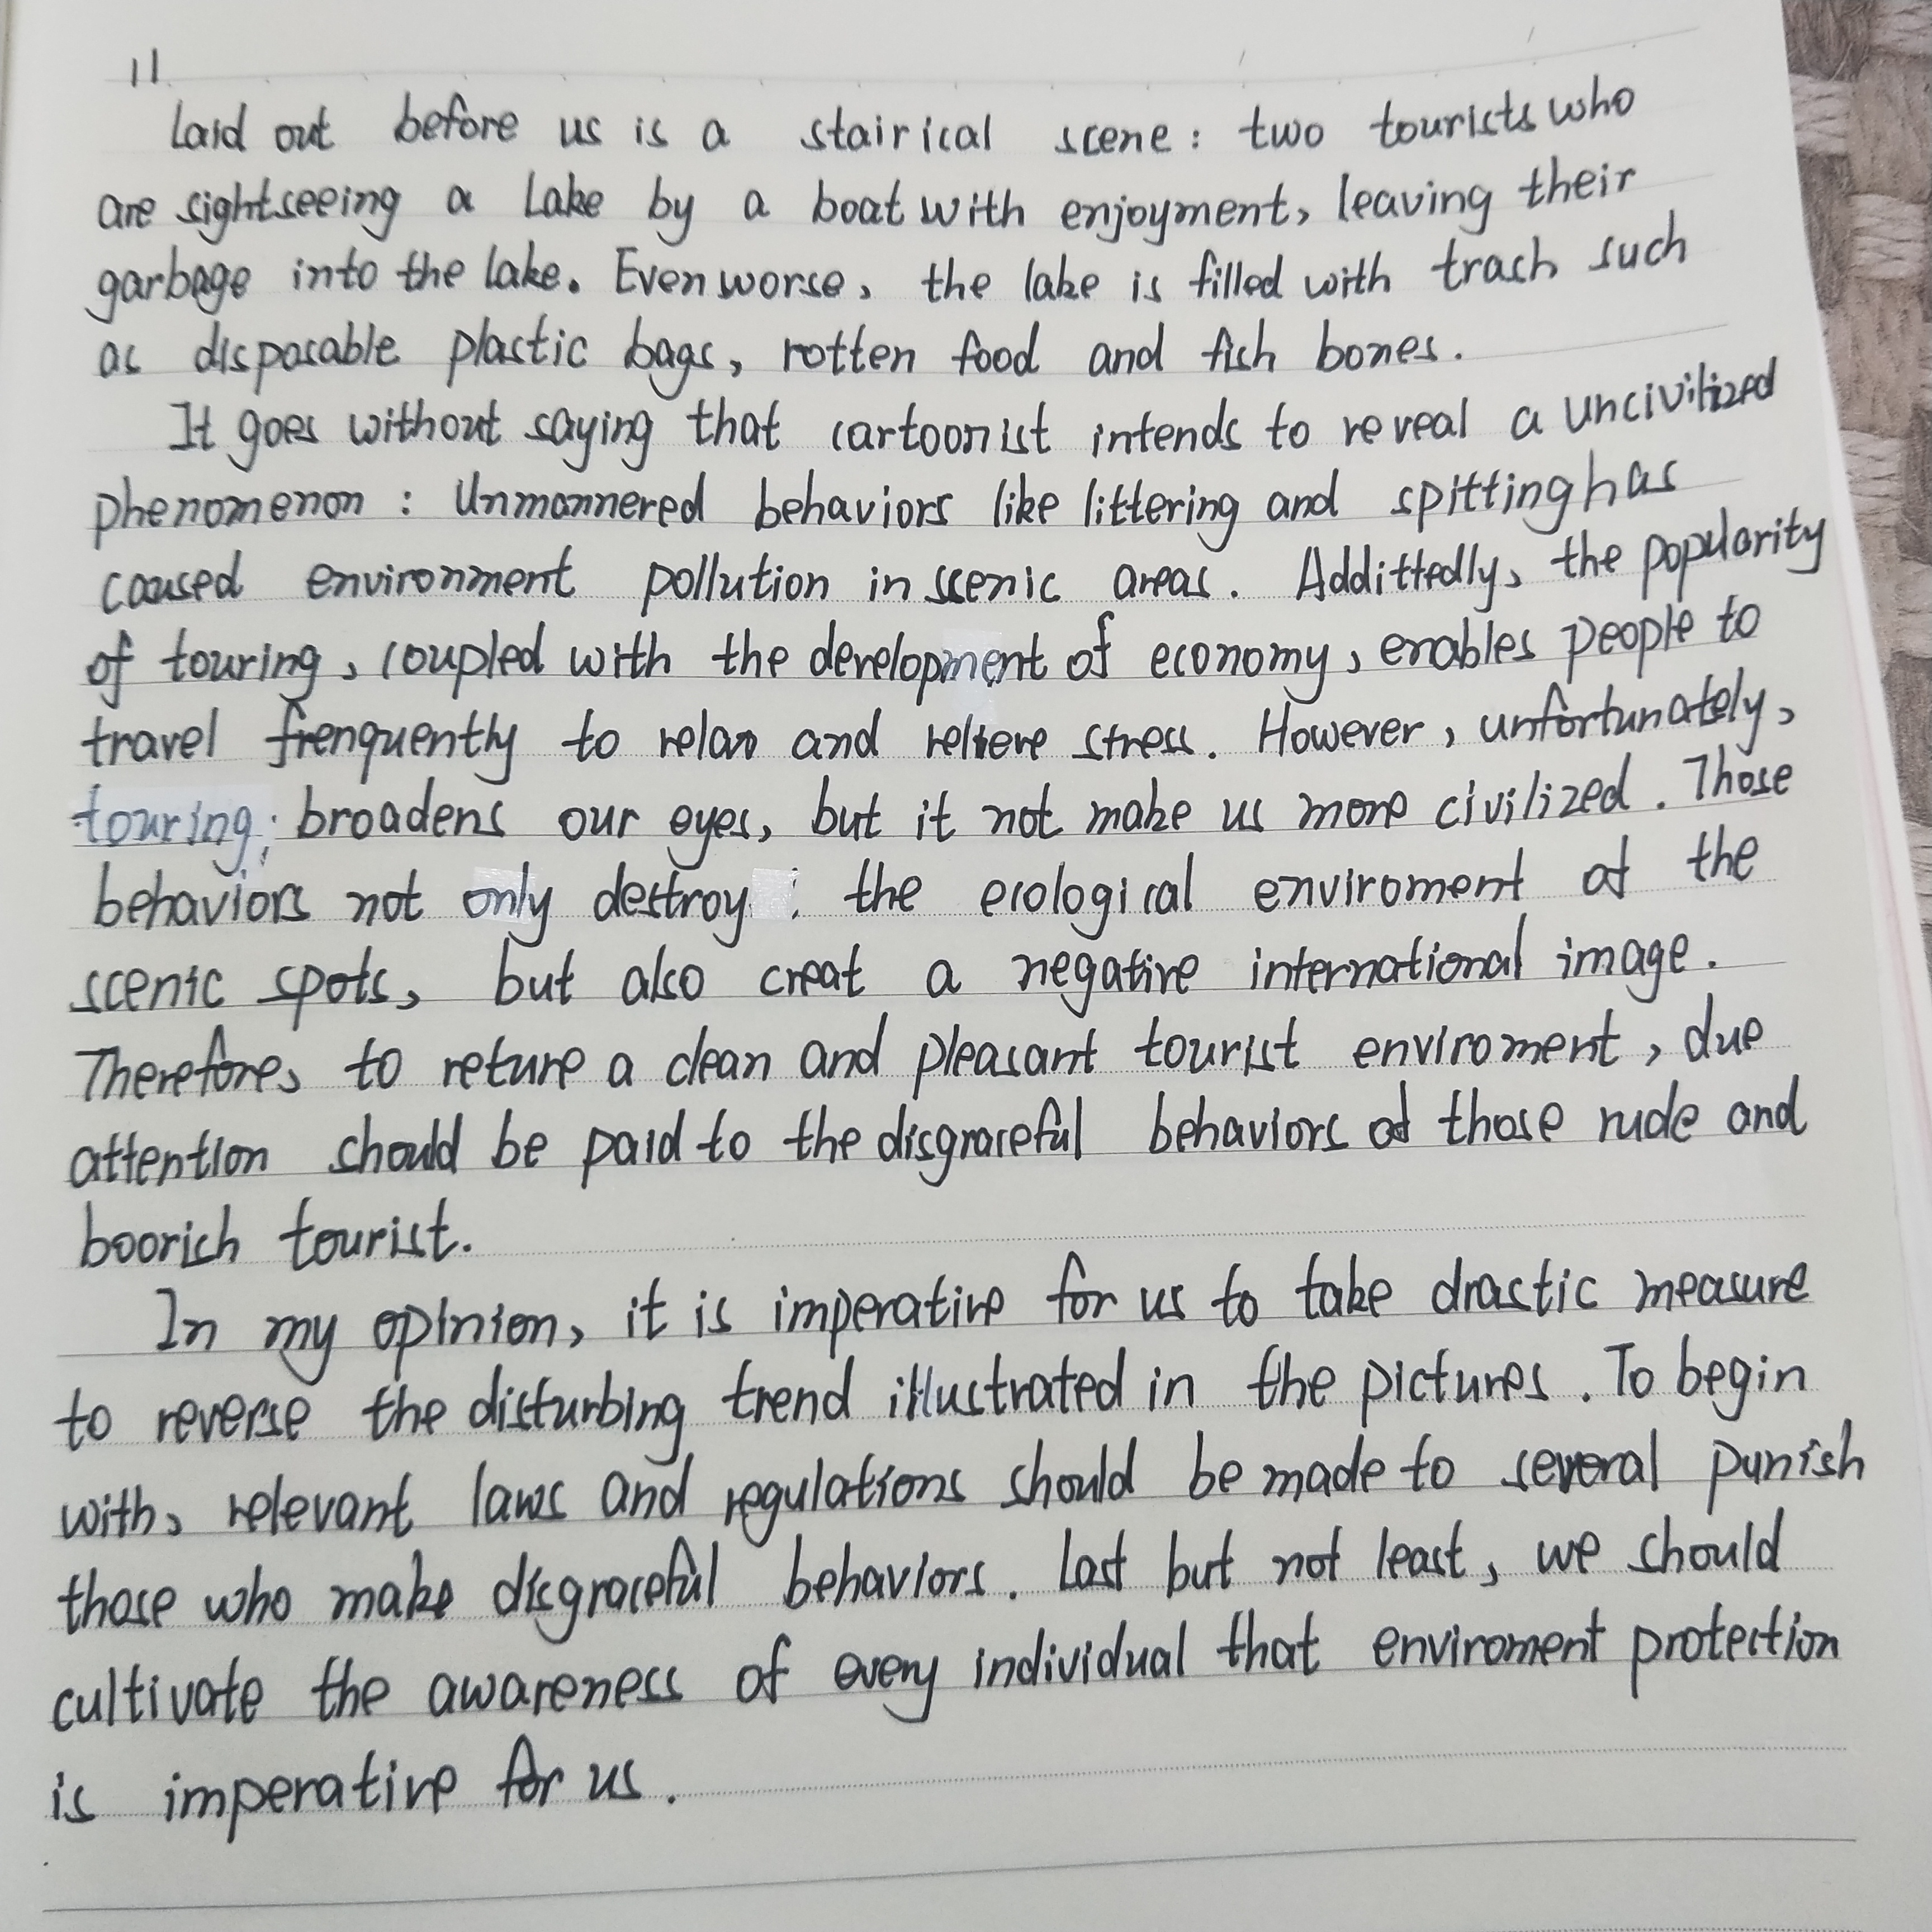 11
Laid out before us is a stairical scene: two tourists who
are sightseeing a Lake by a boat with enjoyment, leaving their
garbage into the lake. Even worse, the lake is filled with trash such
as disposable plastic bags, rotten food and fish bones.
It goes without saying that cartoonist intends to reveal a uncivilized
phenomenon: Unmannered behaviors like littering and spitting has
caused environment pollution in scenic areas. Addittedly, the popularity
of touring, coupled with the development of economy, enables people to
travel frenquently to relax and relieve stress. However, unfortunately,
touring broadens our eyes, but it not make us more civilized. Those
behaviors not only destroy the ecological enviroment of the
scenic spots, but also creat a negative international image.
Therefore, to reture a clean and pleasant tourist enviroment, due
attention should be paid to the disgraceful behaviors of those rude and
boorish tourist.
In my opinion, it is imperative for us to take drastic measure
to reverse the disturbing trend illustrated in the pictures. To begin
with, relevant laws and regulations should be made to several punish
those who make disgraceful behaviors. Last but not least, we should
cultivate the awareness of every individual that enviroment protection
is imperative for us.